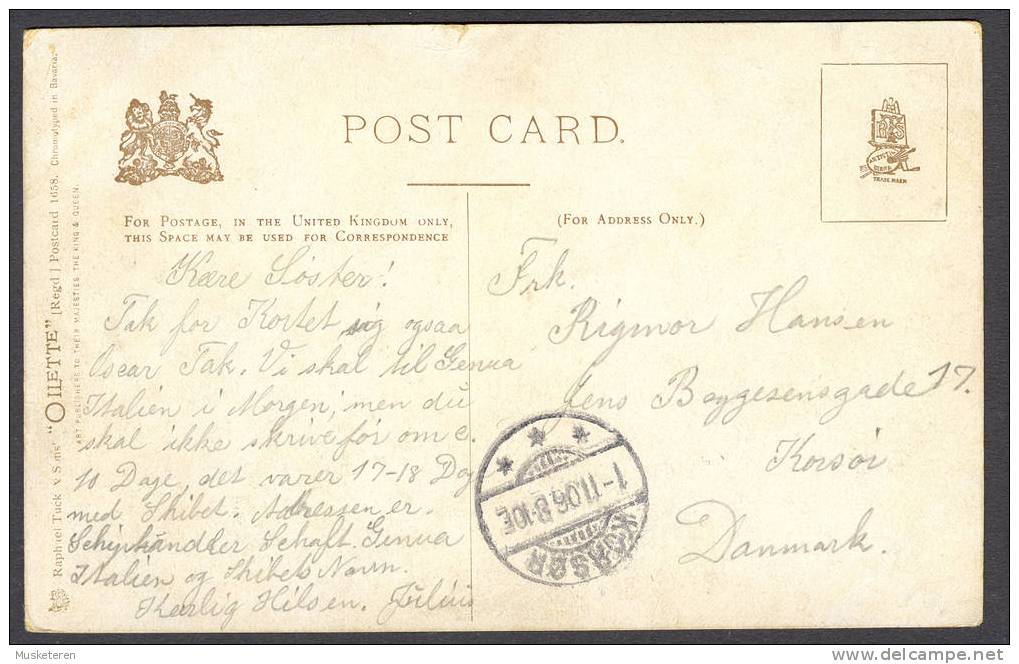 POST CARD.
FOR POSTAGE, IN THE UNITED KINGDOM ONLY,
THIS SPACE MAY BE USED FOR CORRESPONDENCE
(FOR ADDRESS ONLY.)
Kære Søster!
Tak for Kortet, sig ogsaa
Oscar Tak. Vi skal til Genua
Italien i Morgen; men du
skal ikke skrive før om c.
10 Dage, det varer 17-18 Dog
med Skibet. Adressen er.
Schiphändler Schaft. Genua
Italien og Skibets Navn.
Kærlig Hilsen. Julius
Frk.
Rigmor Hansen
Jens Baggesensgade 17.
Korsør
Danmark.
KORSØR
1-11.06.8-10E
RTS
ARTISTIC
SERIES
TRADE MARK
Raphael Tuck & Sons' "OILETTE" [Regd.] Postcard 1658. Chromotyped in Bavaria.
ART PUBLISHERS TO THEIR MAJESTIES THE KING & QUEEN.
Musketeren
delcampe.net